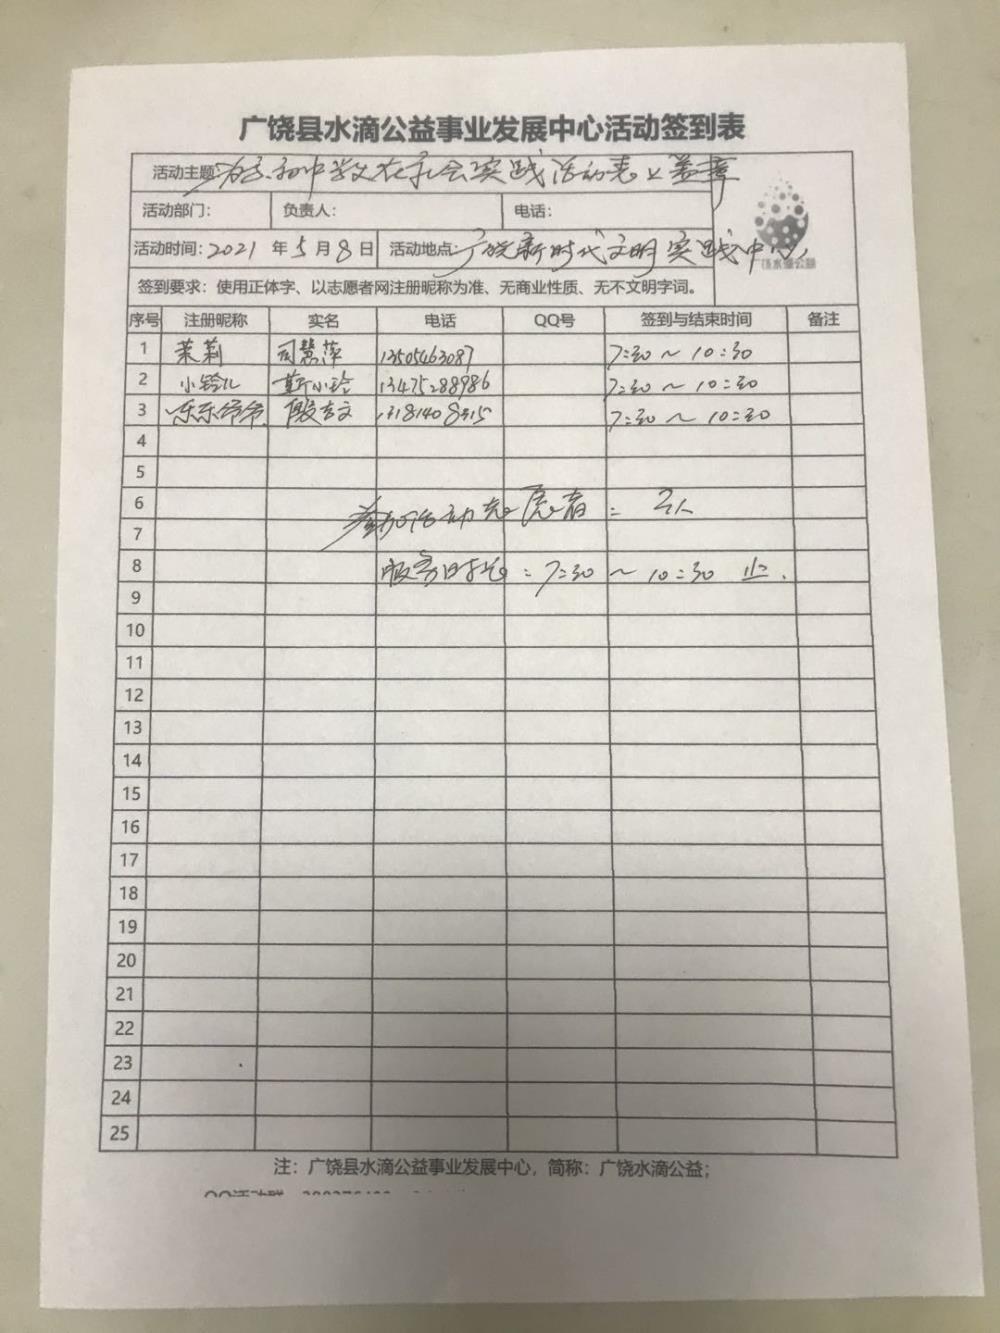 广饶县水滴公益事业发展中心活动签到表
活动主题: 为高初中学生在社会实践活动表上盖章
活动部门: 负责人: 电话:
广饶水滴公益
活动时间: 2021 年 5 月 8 日 活动地点: 广饶新时代文明实践中心
签到要求：使用正体字、以志愿者网注册昵称为准、无商业性质、无不文明字词。
序号 注册昵称 实名 电话 QQ号 签到与结束时间 备注
1 茉莉 司慧萍 13505463087 7:30～10:30
2 小铃儿 靳小玲 13475288986 7:30～10:30
3 乐乐爷爷 殷吉文 1318140 7:30～10:30
4
5
6 参加活动志愿者: 3人
7
8 服务时长: 7:30～10:30 止.
9
10
11
12
13
14
15
16
17
18
19
20
21
22
23
24
25
注：广饶县水滴公益事业发展中心，简称：广饶水滴公益；